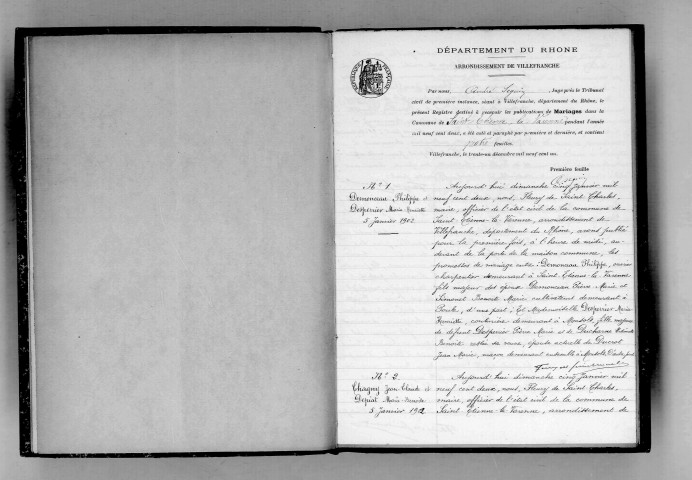 DÉPARTEMENT DU RHONE
ARRONDISSEMENT DE VILLEFRANCHE
Par nous, Juge près le Tribunal
civil de première instance, séant à Villefranche, département du Rhône, le
présent Registre destiné à recevoir les publications de Mariages dans la
Commune de Saint Etienne la Varenne pendant l'année
mil neuf cent deux, a été coté et paraphé par première et dernière, et contient
feuilles.
Villefranche, le trente-un décembre mil neuf cent un.
Première feuille
N° 1.
Demonceau Philippe et
Desperrier Marie
5 Janvier 1902
Aujourd'hui dimanche cinq Janvier mil
neuf cent deux, nous, Fleury de Saint Charles,
maire, officier de l'état civil de la commune de
Saint-Etienne-la-Varenne, arrondissement de
Villefranche, département du Rhône, avons publié
pour la première fois, à l'heure de midi, au-
devant de la porte de la maison commune, les
promesses de mariage entre: Demonceau Philippe, ouvrier
charpentier demeurant à Saint Etienne la Varenne
fils majeur des époux Demonceau Pierre Marie et
Benoite Marie cultivateurs demeurant à
d'une part; Et Mademoiselle Desperrier Marie
couturière demeurant à fille majeure
de défunt Desperrier Pierre Marie et de
Benoite restée sa veuve, épouse actuelle de
Jean Marie, maçon demeurant ensemble à
N° 2.
Chagny Jean Claude et
Marie
5 Janvier 1902
Aujourd'hui dimanche cinq Janvier mil
neuf cent deux, nous, Fleury de Saint Charles,
maire, officier de l'état civil de la commune de
Saint-Etienne-la-Varenne, arrondissement de